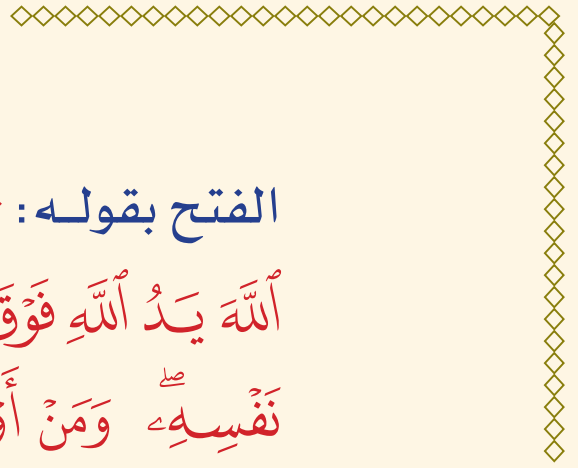 الفتح بقولـه:
ٱللَّهَ يَدُ ٱللَّهِ فَوْقَ
نَفْسِهِۦۖ وَمَنْ